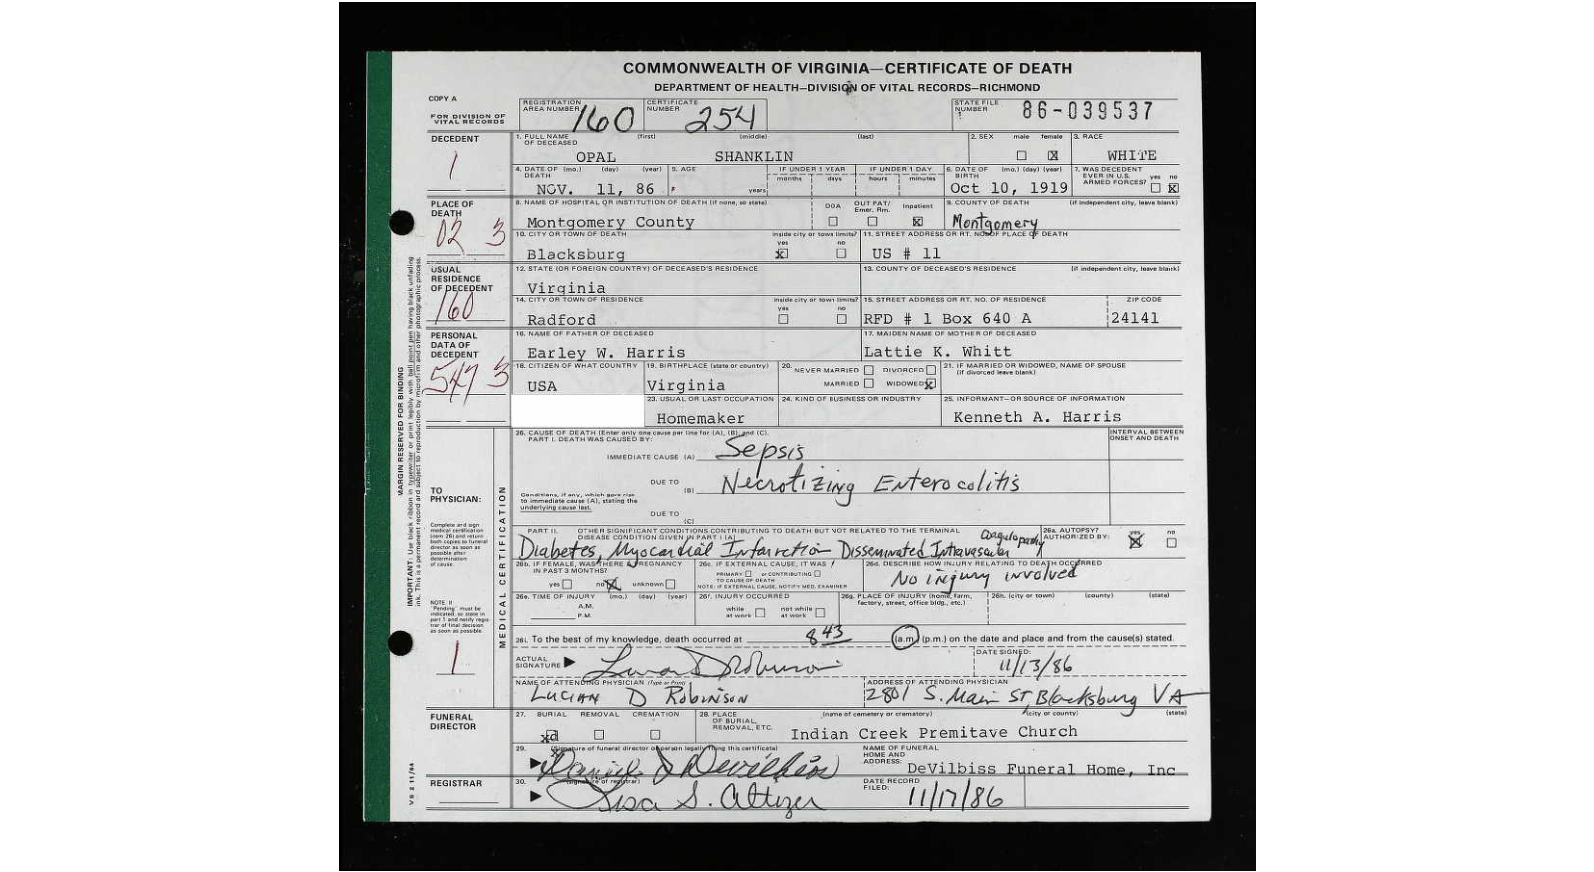 COMMONWEALTH OF VIRGINIA—CERTIFICATE OF DEATH
DEPARTMENT OF HEALTH—DIVISION OF VITAL RECORDS—RICHMOND
COPY A
FOR DIVISION OF VITAL RECORDS
REGISTRATION AREA NUMBER 160
CERTIFICATE NUMBER 254
STATE FILE NUMBER 86-039537
DECEDENT
1
1. FULL NAME OF DECEASED (first) (middle) (last)
OPAL SHANKLIN
2. SEX male female
3. RACE
WHITE
4. DATE OF DEATH (mo.) (day) (year)
NOV. 11, 86
5. AGE
years
IF UNDER 1 YEAR
months days
IF UNDER 1 DAY
hours minutes
6. DATE OF BIRTH (mo.) (day) (year)
Oct 10, 1919
7. WAS DECEDENT EVER IN U.S. ARMED FORCES? yes no
PLACE OF DEATH
02 3
8. NAME OF HOSPITAL OR INSTITUTION OF DEATH (if none, so state)
Montgomery County
DOA OUT PAT/ Emer. Rm. Inpatient
9. COUNTY OF DEATH (if independent city, leave blank)
Montgomery
10. CITY OR TOWN OF DEATH
Blacksburg
inside city or town limits?
yes no
11. STREET ADDRESS OR RT. NO. OF PLACE OF DEATH
US # 11
USUAL RESIDENCE OF DECEDENT
160
12. STATE (OR FOREIGN COUNTRY) OF DECEASED'S RESIDENCE
Virginia
13. COUNTY OF DECEASED'S RESIDENCE (if independent city, leave blank)
14. CITY OR TOWN OF RESIDENCE
Radford
inside city or town limits?
yes no
15. STREET ADDRESS OR RT. NO. OF RESIDENCE
RFD # 1 Box 640 A
ZIP CODE
24141
PERSONAL DATA OF DECEDENT
547 3
16. NAME OF FATHER OF DECEASED
Earley W. Harris
17. MAIDEN NAME OF MOTHER OF DECEASED
Lattie K. Whitt
18. CITIZEN OF WHAT COUNTRY
USA
19. BIRTHPLACE (state or country)
Virginia
20. NEVER MARRIED DIVORCED
MARRIED WIDOWED
21. IF MARRIED OR WIDOWED, NAME OF SPOUSE
(if divorced leave blank)
23. USUAL OR LAST OCCUPATION
Homemaker
24. KIND OF BUSINESS OR INDUSTRY
25. INFORMANT—OR SOURCE OF INFORMATION
Kenneth A. Harris
MARGIN RESERVED FOR BINDING
MEDICAL CERTIFICATION
26. CAUSE OF DEATH (Enter only one cause per line for (A), (B), and (C).
PART I. DEATH WAS CAUSED BY:
INTERVAL BETWEEN ONSET AND DEATH
IMMEDIATE CAUSE (A) Sepsis
DUE TO (B) Necrotizing Enterocolitis
Conditions, if any, which gave rise to immediate cause (A), stating the underlying cause last.
DUE TO (C)
TO PHYSICIAN:
Complete and sign medical certification (item 26) and return both copies to funeral director as soon as possible after determination of cause.
PART II. OTHER SIGNIFICANT CONDITIONS CONTRIBUTING TO DEATH BUT NOT RELATED TO THE TERMINAL DISEASE CONDITION GIVEN IN PART I (A)
Diabetes, Myocardial Infarction Disseminated Intravascular Coagulopathy
26a. AUTOPSY? AUTHORIZED BY: yes no
26b. IF FEMALE, WAS THERE A PREGNANCY IN PAST 3 MONTHS?
yes no unknown
26c. IF EXTERNAL CAUSE, IT WAS
PRIMARY or CONTRIBUTING
TO CAUSE OF DEATH
NOTE: IF EXTERNAL CAUSE, NOTIFY MED. EXAMINER
26d. DESCRIBE HOW INJURY RELATING TO DEATH OCCURRED
No injury involved
NOTE: If "Pending" must be indicated, so state in part 1 and notify registrar of final decision as soon as possible.
1
26e. TIME OF INJURY (mo.) (day) (year)
A.M.
P.M.
26f. INJURY OCCURRED
while at work not while at work
26g. PLACE OF INJURY (home, farm, factory, street, office bldg., etc.)
26h. (city or town) (county) (state)
26i. To the best of my knowledge, death occurred at 843 (a.m.) (p.m.) on the date and place and from the cause(s) stated.
ACTUAL SIGNATURE
DATE SIGNED:
11/13/86
NAME OF ATTENDING PHYSICIAN (Type or Print)
LUCIAN D ROBINSON
ADDRESS OF ATTENDING PHYSICIAN
2801 S. Main ST, Blacksburg VA
FUNERAL DIRECTOR
27. BURIAL REMOVAL CREMATION
28. PLACE OF BURIAL, REMOVAL, ETC. (name of cemetery or crematory) (city or county) (state)
Indian Creek Premitave Church
29. (Signature of funeral director or person legally filing this certificate)
NAME OF FUNERAL HOME AND ADDRESS:
DeVilbiss Funeral Home, Inc
REGISTRAR
30. (signature of registrar)
Lisa S. Altizer
DATE RECORD FILED:
11/17/86
VS 2 11/84